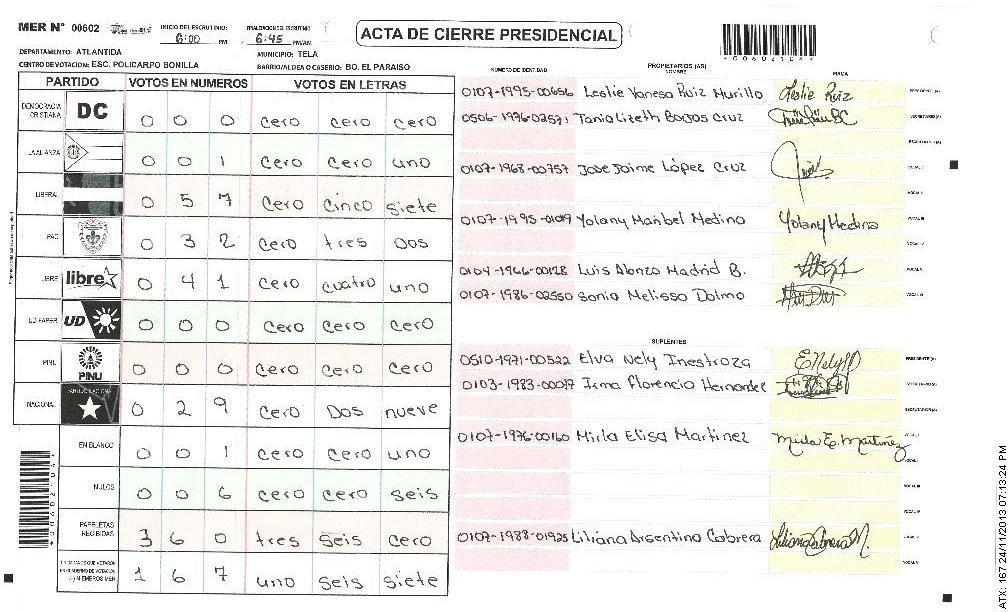 MER N° 00602
INICIO DEL ESCRUTINIO: 6:00 PM
FINALIZACION DEL ESCRUTINIO 6:45 PM/AM
ACTA DE CIERRE PRESIDENCIAL
*00602104*
DEPARTAMENTO: ATLANTIDA
MUNICIPIO: TELA
CENTRO DE VOTACION: ESC. POLICARPO BONILLA
BARRIO/ALDEA O CASERIO: BO. EL PARAISO
PARTIDO VOTOS EN NUMEROS VOTOS EN LETRAS
DEMOCRACIA CRISTIANA DC 0 0 0 cero cero cero
LA ALIANZA 0 0 1 cero cero uno
LIBERAL 0 5 7 cero cinco siete
PAC 0 3 2 cero tres Dos
LIBRE libre 0 4 1 cero cuatro uno
UD-FAPER UD 0 0 0 cero cero cero
PINU PINU 0 0 0 cero cero cero
NACIONAL 0 2 9 cero Dos nueve
EN BLANCO 0 0 1 cero cero uno
NULOS 0 0 6 cero cero seis
PAPELETAS RECIBIDAS 3 6 0 tres seis cero
1 6 7 uno seis siete
NUMERO DE IDENTIDAD
PROPIETARIOS (AS)
NOMBRE
FIRMA
0107-1995-00656 Leslie Vanesa Ruiz Murillo Leslie Ruiz PRESIDENTE (A)
0506-1976-02571 Tania Lizeth Barjos Cruz SECRETARIO (A)
ESCRUTADOR (A)
0107-1968-00757 Jose Jaime López Cruz VOCAL I
VOCAL II
0107-1995-01019 Yolany Maribel Medina Yolany Medina VOCAL III
VOCAL IV
0104-1966-00128 Luis Alonzo Madrid B. VOCAL V
0107-1986-02550 Sonia Melissa Dolmo VOCAL VI
SUPLENTES
0510-1971-00522 Elva Nely Inestroza PRESIDENTE (A)
0103-1983-00097 Irma Florencia Hernandez SECRETARIO (A)
ESCRUTADOR (A)
0107-1976-00160 Mirla Elisa Martinez Mirla E. Martinez VOCAL I
VOCAL II
VOCAL III
VOCAL IV
0107-1988-01925 Liliana Argentina Cabrera VOCAL V
VOCAL VI
ATX: 167 24/11/2013 07:13:24 PM